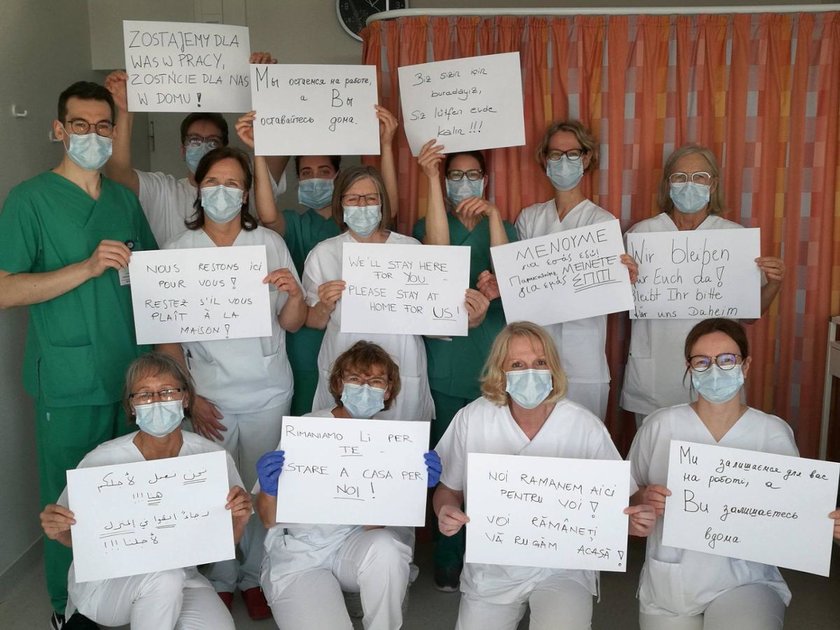 ZOSTAJEMY DLA
WAS W PRACY,
ZOSTŃCIE DLA NAS
W DOMU!
Мы остаемся на работе,
а Вы
оставайтесь дома.
Biz sizin için
buradayiz,
Siz lütfen evde
kalin!!!
NOUS RESTONS ici
POUR VOUS!
RESTEZ S'IL VOUS
PLAÎT À LA
MAISON!
WE'LL STAY HERE
FOR YOU
PLEASE STAY AT
HOME FOR US!
ΜΕΝΟΥΜΕ
για εσάς εδώ!
Παρακαλούμε ΜΕΙΝΕΤΕ
για εμάς ΣΠΙΤΙ
Wir bleiben
für Euch da!
Bleibt Ihr bitte
für uns Daheim
نحن نعمل لأجلكم
هنا!!!
لأجلنا!!!
RIMANIAMO LI PER
TE
STARE A CASA PER
NOI!
NOI RAMANEM AICI
PENTRU VOI!
VOI RĂMÂNEȚI
VĂ RUGĂM ACASĂ!
Ми залишаємся для вас
на роботі, а
Ви залишаєтесь
вдома